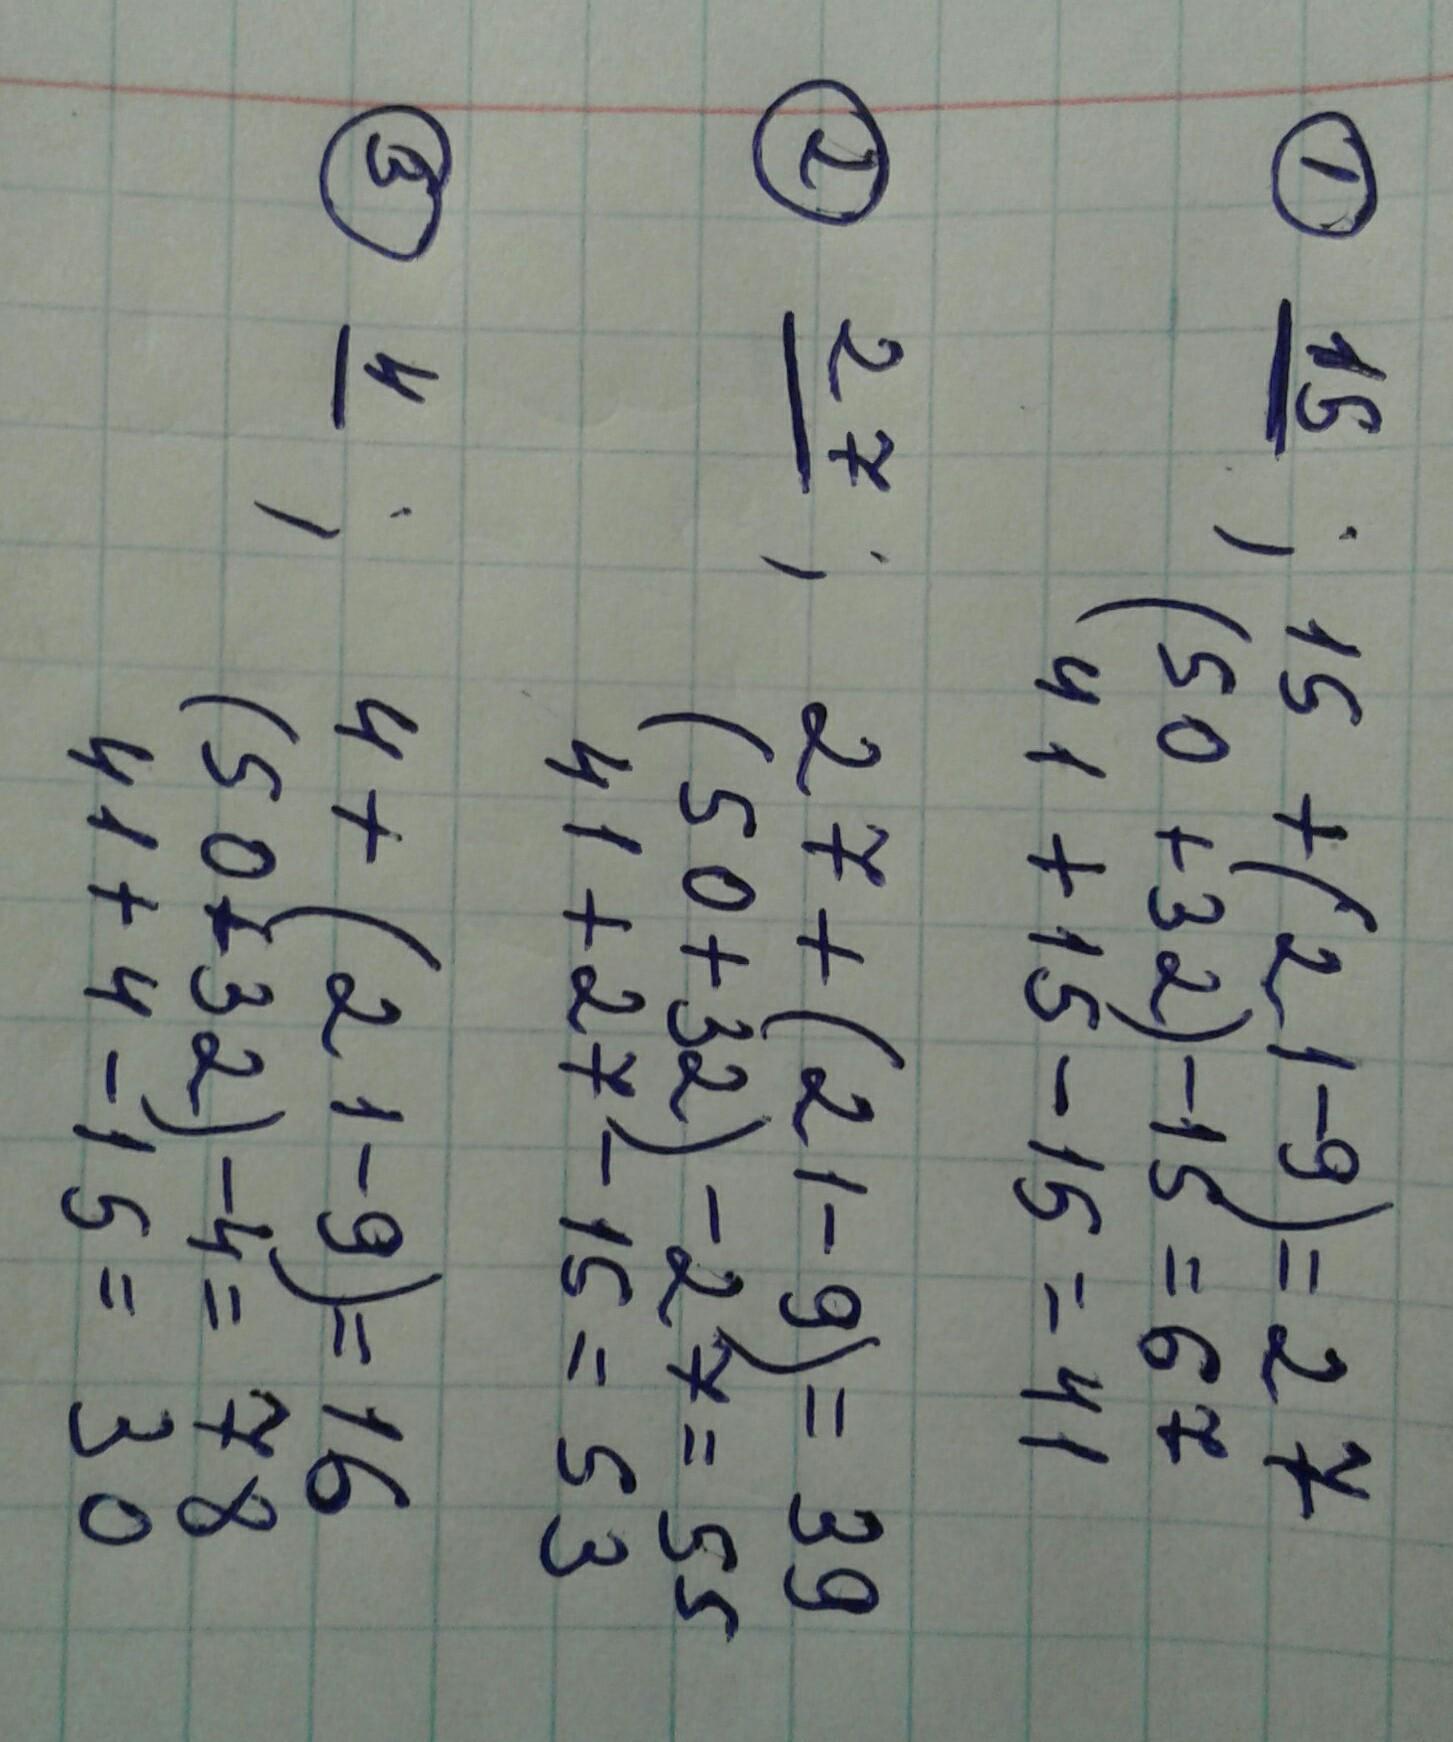 ① 15 ; 15 + (21 - 9) = 27
(50 + 32) - 15 = 67
41 + 15 - 15 = 41
② 27 ; 27 + (21 - 9) = 39
(50 + 32) - 27 = 55
41 + 27 - 15 = 53
③ 4 ; 4 + (21 - 9) = 16
(50 + 32) - 4 = 78
41 + 4 - 15 = 30